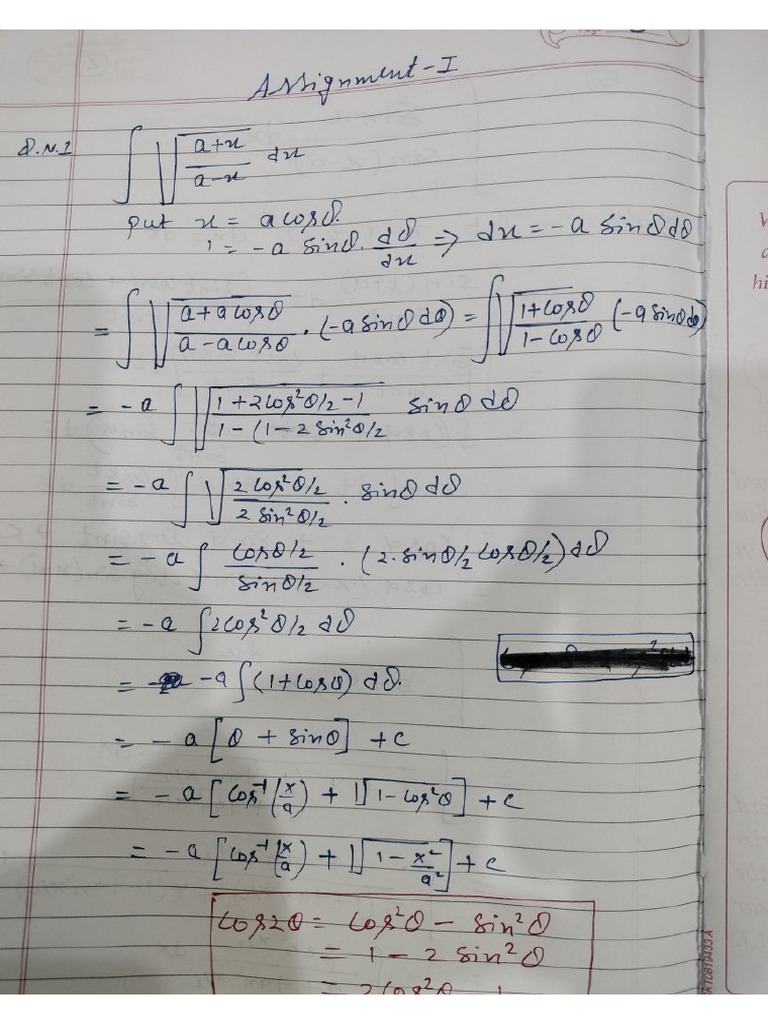 Assignment-I
Q.N.1 ∫ √(a+x / a-x) dx
put x = a cosθ.
1 = -a sinθ. dθ/dx ⇒ dx = -a sinθ dθ
= ∫ √(a+a cosθ / a-a cosθ) . (-a sinθ dθ) = ∫ √(1+cosθ / 1-cosθ) (-a sinθ dθ)
= -a ∫ √(1+2cos²θ/2-1 / 1-(1-2 sin²θ/2) sinθ dθ
= -a ∫ √(2cos²θ/2 / 2 sin²θ/2) . sinθ dθ
= -a ∫ cosθ/2 / sinθ/2 . (2.sinθ/2 cosθ/2) dθ
= -a ∫ 2cos²θ/2 dθ
= -a ∫ (1+cosθ) dθ.
= -a [θ + sinθ] + c
= -a [cos⁻¹(x/a) + √(1-cos²θ)] + c
= -a [cos⁻¹(x/a) + √(1-x²/a²)] + c
cos2θ = cos²θ - sin²θ
= 1 - 2 sin²θ
= 2cos²θ - 1
KT0819433A